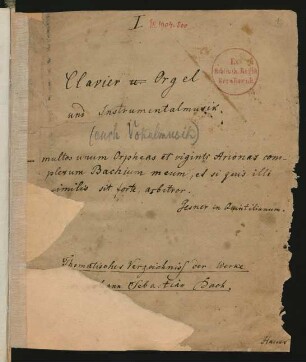 I.
Clavier u Orgel
und Instrumentalmusik.
(auch Vokalmusik)
multos unum Orpheas et viginti Arionas com-
plexum Bachium meum, et si quis illi
similis sit forte arbitror.
Gesner in Quintilianum.
Thematisches Verzeichniß der Werke
Sebastian Bach,
Hauser